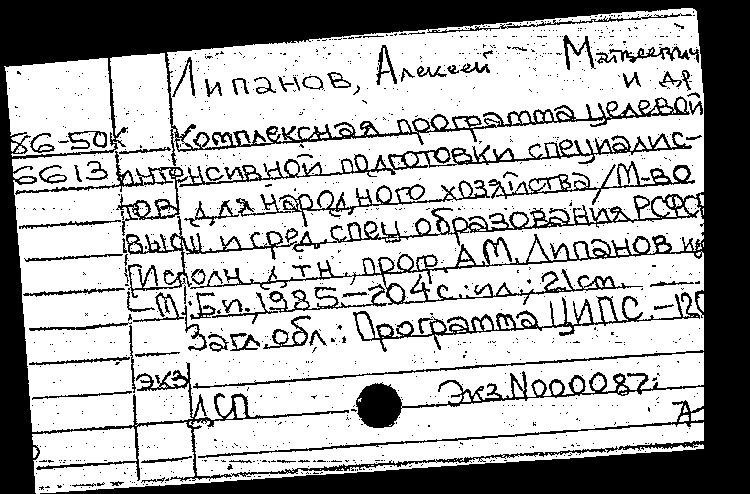 Липанов, Алексей Матвеевич
и др
86-50К Комплексная программа целевой
6613 интенсивной подготовки специалис-
тов для народного хозяйства/М-во
высш. и сред. спец образования РСФСР
Исполн. д.т.н., проф. А.М. Липанов и др
—М.: Б.и., 1985.—204 с.: ил.; 21 см.
Загл. обл.: Программа ЦИПС.—120
экз.
ДСП Экз.N000087.
А